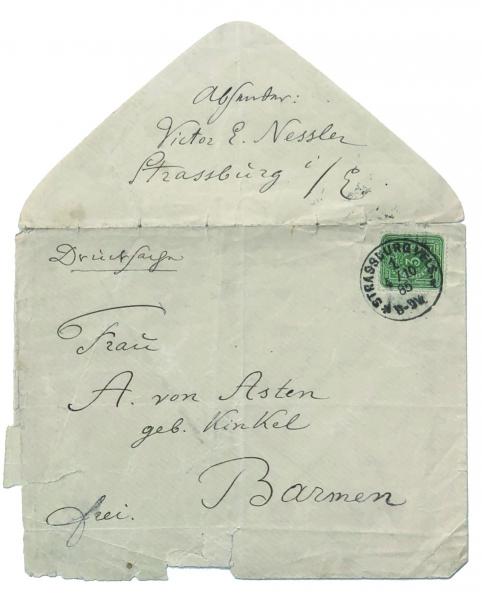 Absender:
Victor E. Nessler
Strassburg i/E
Drucksache
STRASSBURG
1 10
85
8-9V.
Frau
A. von Asten
geb. Kinkel
Barmen
frei.